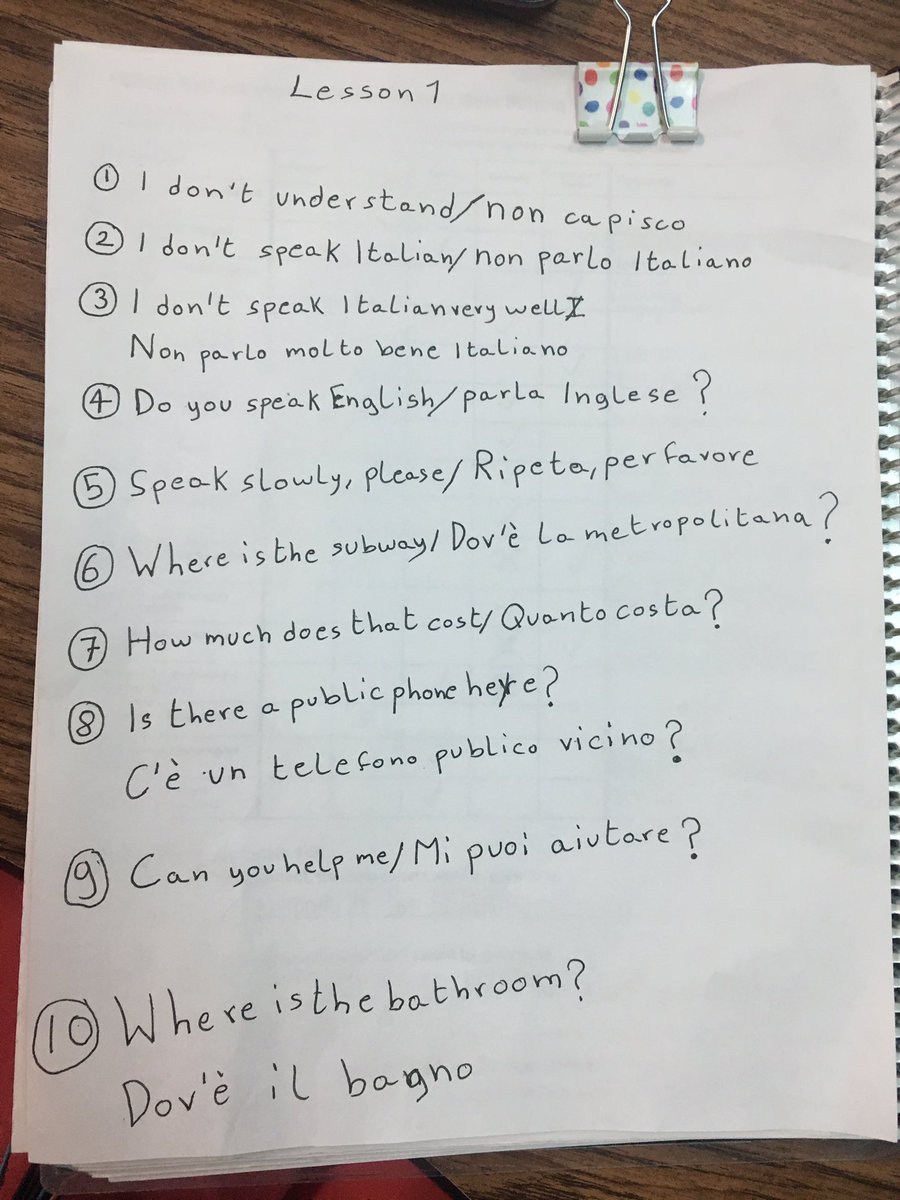 Lesson 1
① I don't understand/non capisco
② I don't speak Italian/non parlo Italiano
③ I don't speak Italian very well/
Non parlo molto bene Italiano
④ Do you speak English/parla Inglese?
⑤ Speak slowly, please/Ripeta, per favore
⑥ Where is the subway/Dov'è la metropolitana?
⑦ How much does that cost/Quanto costa?
⑧ Is there a public phone here?
C'è un telefono publico vicino?
⑨ Can you help me/Mi puoi aiutare?
⑩ Where is the bathroom?
Dov'è il bagno